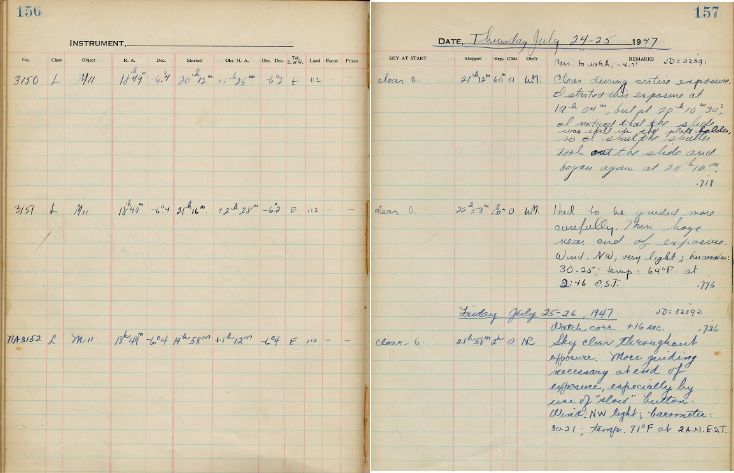 156
INSTRUMENT,
No. Class Object R. A. Dec. Started Obs. H. A. Obs. Dec. Load Focus Prism
3150 L M11 18h 49m -6°.4 20h 12m +1h 25m -6°.2 E 112 - -
3151 L M11 18h 49m -6°.4 21h 16m +2h 28m -6°.2 E 112 - -
3152 L M11 18h 49m -6°.4 19h 58m +1h 12m -6°.4 E 112 - -
157
DATE, Thursday July 24-25 1947
SKY AT START Stopped Exp. Obs'r REMARKS JD=32391
clear 0. 21h 12m 60m 0 WM. Clear during entire exposure.
I started this exposure at
but at 20h 10m 30s,
I noticed that the slide
was still in the plate holder,
so I shut the shutter
took out the slide and
began again at 20h
.718
clear 0. 0 WM. Had to be guided more
carefully. Thin haze
near end of exposure.
Wind: NW, very light; barometer:
30.25; temp. 64°F at
2:46 E.S.T. .776
Friday July 25-26, 1947 JD=32392
Watch corr. +16 sec. .726
clear 0. 21h 58m 2h 0 NR Sky clear throughout
exposure. More guiding
necessary at end of
exposure, especially by
use of "slow" button.
Wind: NW light; barometer:
30.21; temp. 71°F at 2 A.M. E.S.T.